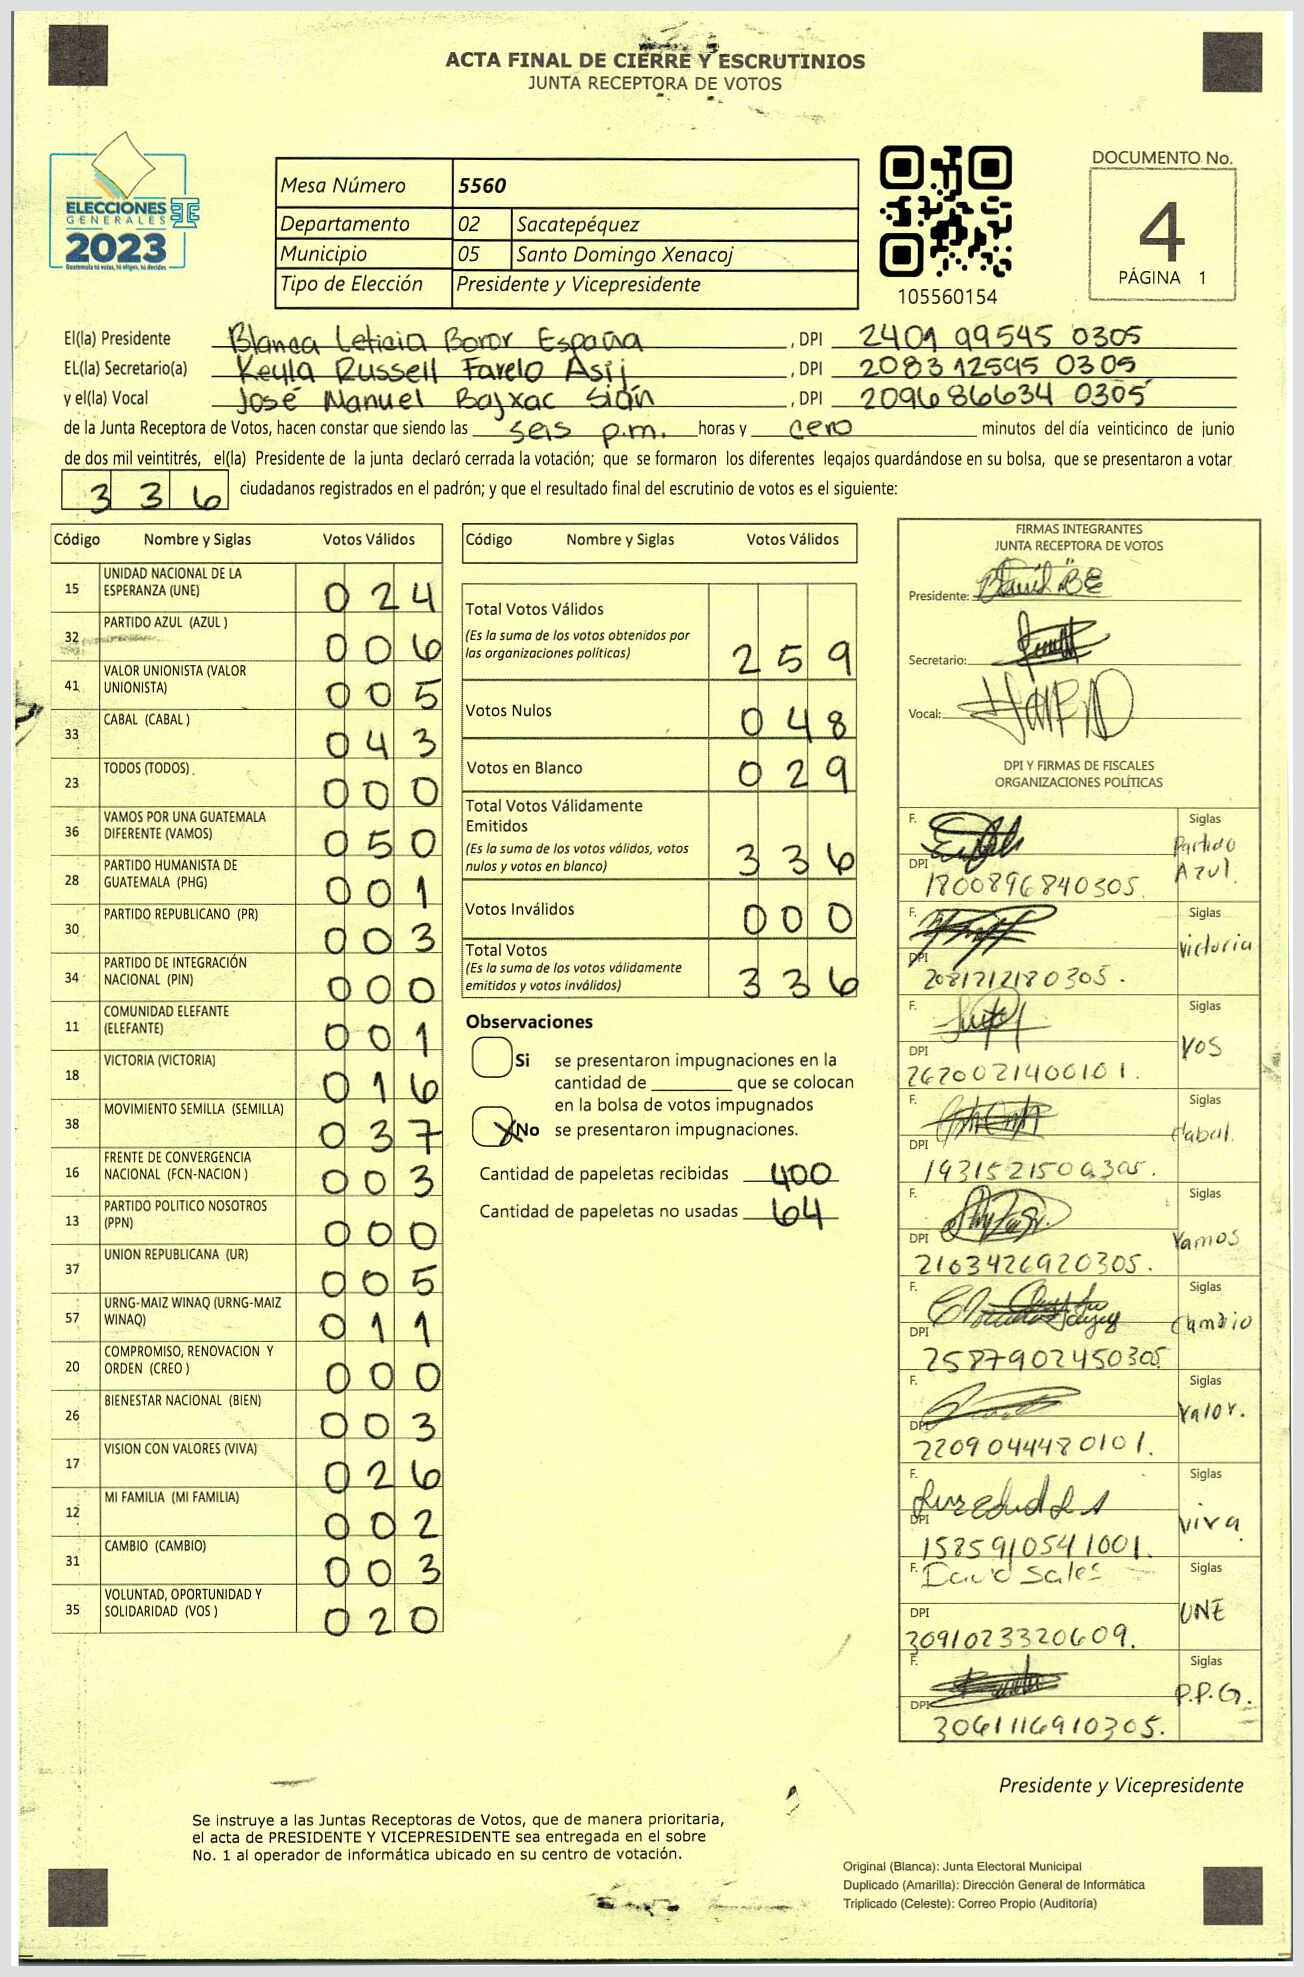 ACTA FINAL DE CIERRE Y ESCRUTINIOS
JUNTA RECEPTORA DE VOTOS
ELECCIONES
GENERALES
2023
Guatemala tú votas, tú eliges, tú decides
Mesa Número 5560
Departamento 02 Sacatepéquez
Municipio 05 Santo Domingo Xenacoj
Tipo de Elección Presidente y Vicepresidente
105560154
DOCUMENTO No.
4
PÁGINA 1
El(la) Presidente Blanca Leticia Boror España , DPI 2401 99545 0305
EL(la) Secretario(a) Keyla Russell Farelo Asij , DPI 2083 12595 0305
y el(la) Vocal José Manuel Bajxac Sián , DPI 2096 86634 0305
de la Junta Receptora de Votos, hacen constar que siendo las seis p.m. horas y cero minutos del día veinticinco de junio
de dos mil veintitrés, el(la) Presidente de la junta declaró cerrada la votación; que se formaron los diferentes legajos guardándose en su bolsa, que se presentaron a votar
336 ciudadanos registrados en el padrón; y que el resultado final del escrutinio de votos es el siguiente:
Código Nombre y Siglas Votos Válidos
15 UNIDAD NACIONAL DE LA
ESPERANZA (UNE) 024
32 PARTIDO AZUL (AZUL ) 006
41 VALOR UNIONISTA (VALOR
UNIONISTA) 005
33 CABAL (CABAL ) 043
23 TODOS (TODOS) 000
36 VAMOS POR UNA GUATEMALA
DIFERENTE (VAMOS) 050
28 PARTIDO HUMANISTA DE
GUATEMALA (PHG) 001
30 PARTIDO REPUBLICANO (PR) 003
34 PARTIDO DE INTEGRACIÓN
NACIONAL (PIN) 000
11 COMUNIDAD ELEFANTE
(ELEFANTE) 001
18 VICTORIA (VICTORIA) 016
38 MOVIMIENTO SEMILLA (SEMILLA) 037
16 FRENTE DE CONVERGENCIA
NACIONAL (FCN-NACION ) 003
13 PARTIDO POLITICO NOSOTROS
(PPN) 000
37 UNION REPUBLICANA (UR) 005
57 URNG-MAIZ WINAQ (URNG-MAIZ
WINAQ) 011
20 COMPROMISO, RENOVACION Y
ORDEN (CREO ) 000
26 BIENESTAR NACIONAL (BIEN) 003
17 VISION CON VALORES (VIVA) 026
12 MI FAMILIA (MI FAMILIA) 002
31 CAMBIO (CAMBIO) 003
35 VOLUNTAD, OPORTUNIDAD Y
SOLIDARIDAD (VOS ) 020
Código Nombre y Siglas Votos Válidos
Total Votos Válidos
(Es la suma de los votos obtenidos por
las organizaciones políticas) 259
Votos Nulos 048
Votos en Blanco 029
Total Votos Válidamente
Emitidos
(Es la suma de los votos válidos, votos
nulos y votos en blanco) 336
Votos Inválidos 000
Total Votos
(Es la suma de los votos válidamente
emitidos y votos inválidos) 336
Observaciones
Si se presentaron impugnaciones en la
cantidad de que se colocan
en la bolsa de votos impugnados
X No se presentaron impugnaciones.
Cantidad de papeletas recibidas 400
Cantidad de papeletas no usadas 64
FIRMAS INTEGRANTES
JUNTA RECEPTORA DE VOTOS
Presidente:
Secretario:
Vocal:
DPI Y FIRMAS DE FISCALES
ORGANIZACIONES POLÍTICAS
F. Siglas
Partido
Azul.
DPI 1800896840305.
F. Siglas
Victoria
DPI 2081212180305.
F. Siglas
VOS
DPI 2620021400101.
F. Siglas
Cabal.
DPI 1931521500305.
F. Siglas
Vamos
DPI 2163426920305.
F. Siglas
Cambio
DPI 2587902450305
F. Siglas
Valor.
DPI 2209044480101.
F. Siglas
Viva
DPI 1585910541001.
F. David Sales Siglas
UNE
DPI 3091023320609.
F. Siglas
P.P.G.
DPI 3061116910305.
Presidente y Vicepresidente
Se instruye a las Juntas Receptoras de Votos, que de manera prioritaria,
el acta de PRESIDENTE Y VICEPRESIDENTE sea entregada en el sobre
No. 1 al operador de informática ubicado en su centro de votación.
Original (Blanca): Junta Electoral Municipal
Duplicado (Amarilla): Dirección General de Informática
Triplicado (Celeste): Correo Propio (Auditoría)